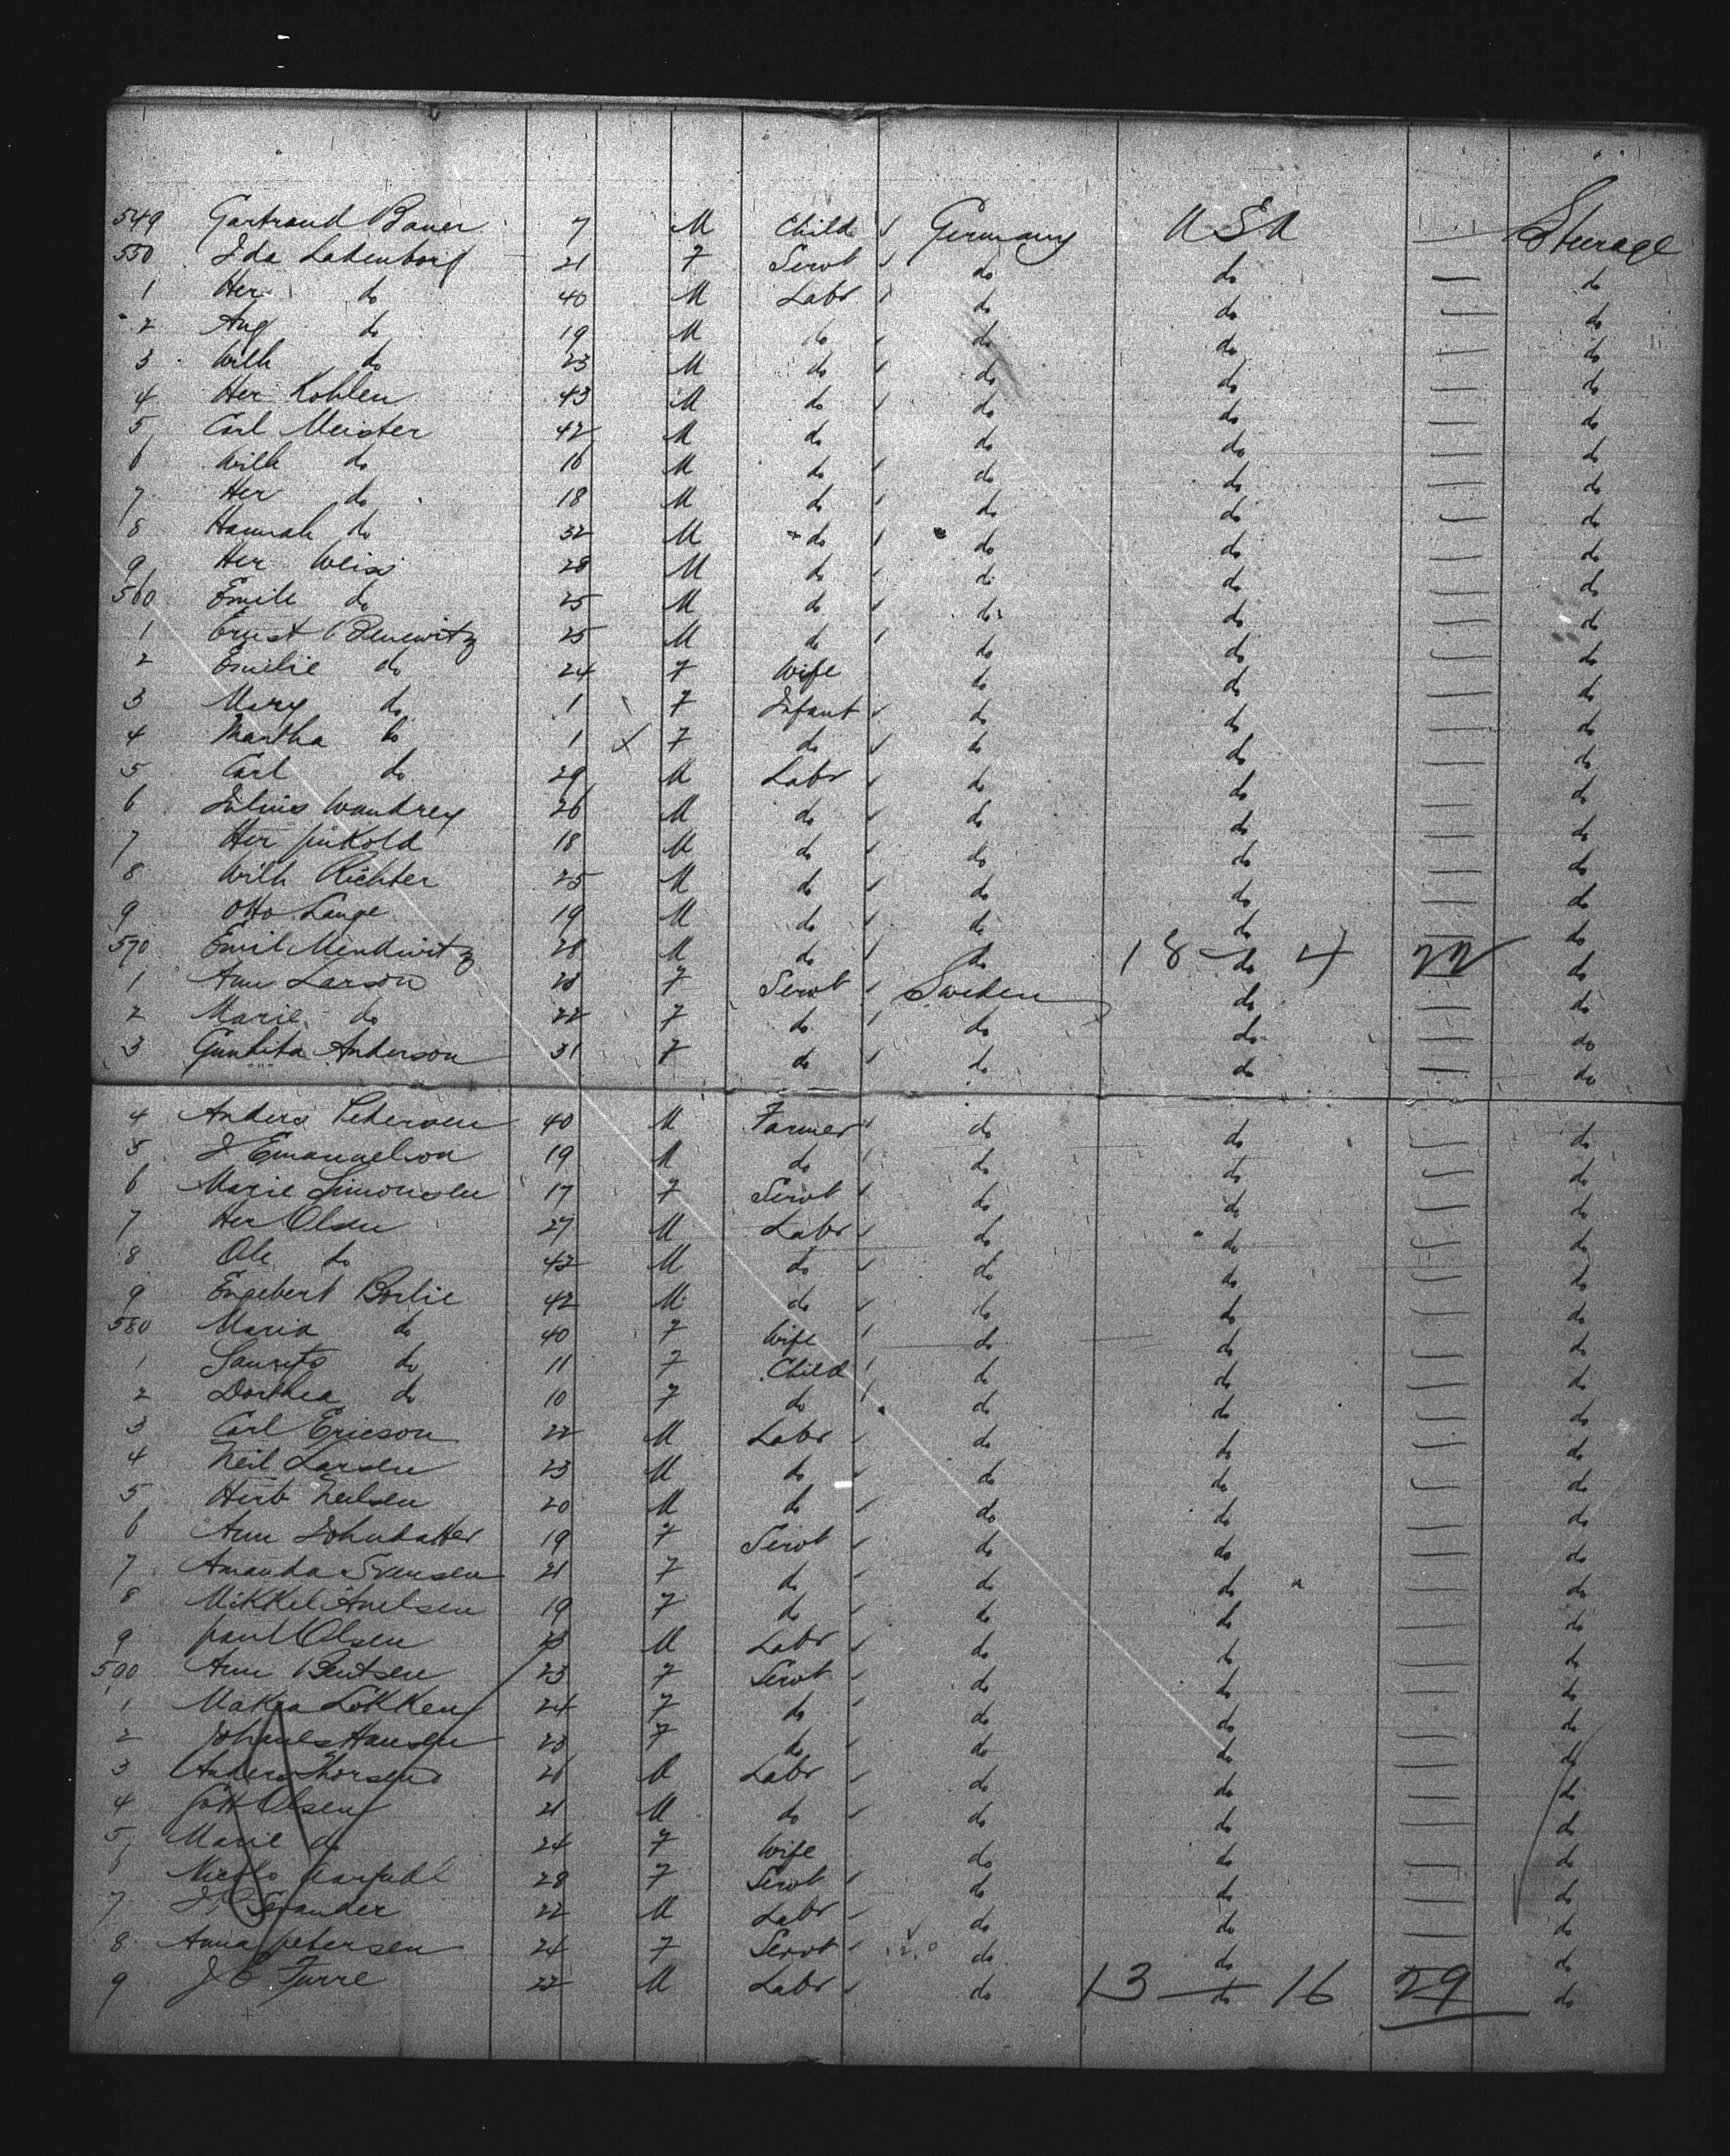 549 Gartraud Bauer 7 M Child Germany USA Steerage
550 Ida Ladenborf 21 F Servt do do do
1 Her do 40 M Labr do do do
2 Aug do 19 M do do do do
3 Wilh do 23 M do do do do
4 Her Kohlen 43 M do do do do
5 Carl Meister 42 M do do do do
6 Wilh do 16 M do do do do
7 Her do 18 M do do do do
8 Hannah do 32 M do do do do
9 Her Weiss 28 M do do do do
560 Emile do 25 M do do do do
1 Ernst 25 M do do do do
2 Emelie do 24 F Wife do do do
3 Mary do 1 F Infant do do do
4 Martha do 1 F do do do do
5 Carl do 29 M Labr do do do
6 Julius Wandrey 26 M do do do do
7 Her pinkold 18 M do do do do
8 Wilh Richter 25 M do do do do
9 Otto Lange 19 M do do do do
570 Emil Mendwitz 28 M do do 18 - do 4 22 do
1 Ann Larson 23 F Servt Sweden do do
2 Marie do 22 F do do do do
3 Anderson 31 F do do do do
4 Anders Petersen 40 M Farmer do do do
5 J Emanuelson 19 M do do do do
6 Marie Simonsen 17 F Servt do do do
7 Her Olsen 27 M Labr do do do
8 Ole do 42 M do do do do
9 Engebert Borlie 42 M do do do do
580 Maria do 40 F Wife do do do
1 Laurits do 11 F Child do do do
2 Dorthea do 10 F do do do do
3 Carl Ericson 22 M Labr do do do
4 Neil Larsen 23 M do do do do
5 Herb Neilsen 20 M do do do do
6 Ann 19 F Servt do do do
7 Amanda Svensen 21 F do do do do
8 Mikkel Anelsen 19 F do do do do
9 paul Olsen M Labr do do do
590 Ann Bentsen 23 F Servt do do do
1 Lokken 24 F do do do do
2 Johanes Hansen 23 F do do do do
3 Anders Thorsen 21 M Labr do do do
4 Olsen 21 M do do do do
5 Marie do 24 F Wife do do do
28 F Servt do do do
7 22 M Labr do do do
8 Anna petersen 24 F Servt do do do
9 J E Furre 22 M Labr do 13 - do 16 29 do